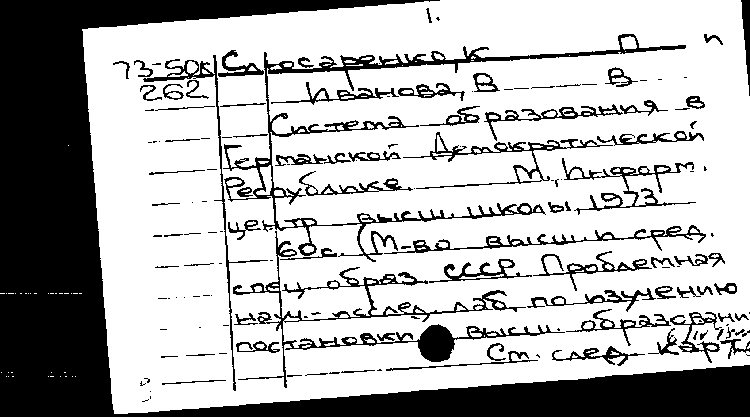 1.
73-50к Слюсаренко, К П п
262 Иванова, В В
Система образования в
Германской Демократической
Республике. М., Информ.
центр высш. школы, 1973.
60с. (М-во высш. и сред.
спец. образ. СССР. Проблемная
науч.-исслед. лаб. по изучению
постановки высш. образовани
См. след. карт